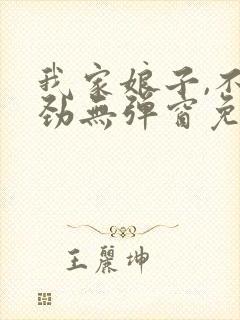 我家娘子,不
劲無弹窗免
王麗坤